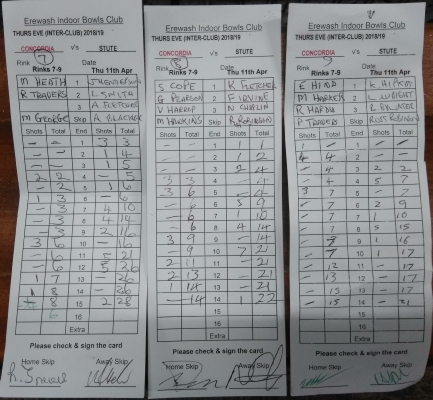 Erewash Indoor Bowls Club
THURS EVE (INTER-CLUB) 2018/19
CONCORDIA v's STUTE
Rink 7
Rinks 7-9 Thu 11th Apr
M HEATH 1
R TRAVERS 2 L SMITH
3 A FLETCHER
M GEORGE Skip
Shots Total End Shots Total
- - 1 3 3
- - 2 1 4
- - 3 1 5
2 2 4 - 5
- 2 5 1 6
1 3 6 - 6
- 3 7 4 10
- 3 8 4 14
- 3 9 2 16
3 6 10 - 16
- 6 11 5 21
- 6 12 5 26
1 7 13 - 26
1 8 14 - 26
- 8 15 2 28
16
Extra
Please check & sign the card
Home Skip Away Skip
Erewash Indoor Bowls Club
THURS EVE (INTER-CLUB) 2018/19
CONCORDIA v's STUTE
Rink 8
Rinks 7-9 Thu 11th Apr
S COPE 1 K FLETCHER
G PEARSON 2 F IRVINE
V HARROP 3 N CHAPLIN
M HAWKINS Skip R ROBINSON
Shots Total End Shots Total
- - 1 1 1
- - 2 1 2
- - 3 2 4
3 3 4 - 4
3 6 5 - 4
- 6 6 5 9
- 6 7 1 10
- 6 8 4 14
3 9 9 - 14
- 9 10 7 21
2 11 11 - 21
2 13 12 - 21
1 14 13 - 21
- 14 14 1 22
15
16
Extra
Please check & sign the card
Home Skip Away Skip
Erewash Indoor Bowls Club
THURS EVE (INTER-CLUB) 2018/19
CONCORDIA v's STUTE
Rink 9
Rinks 7-9 Thu 11th Apr
E HIND 1
2 L WRIGHT
3
P TRAVERS Skip ROBINSON
Shots Total End Shots Total
- - 1 - -
4 4 2 - -
- 4 3 2 2
- 4 4 5 7
3 7 5 - 7
- 7 6 2 9
- 7 7 1 10
- 7 8 5 15
- 7 9 1 16
- 7 10 1 17
- 12 11 - 17
- 13 12 - 17
- 15 13 - 17
- 15 14 - 21
15
16
Extra
Please check & sign the card
Home Skip Away Skip